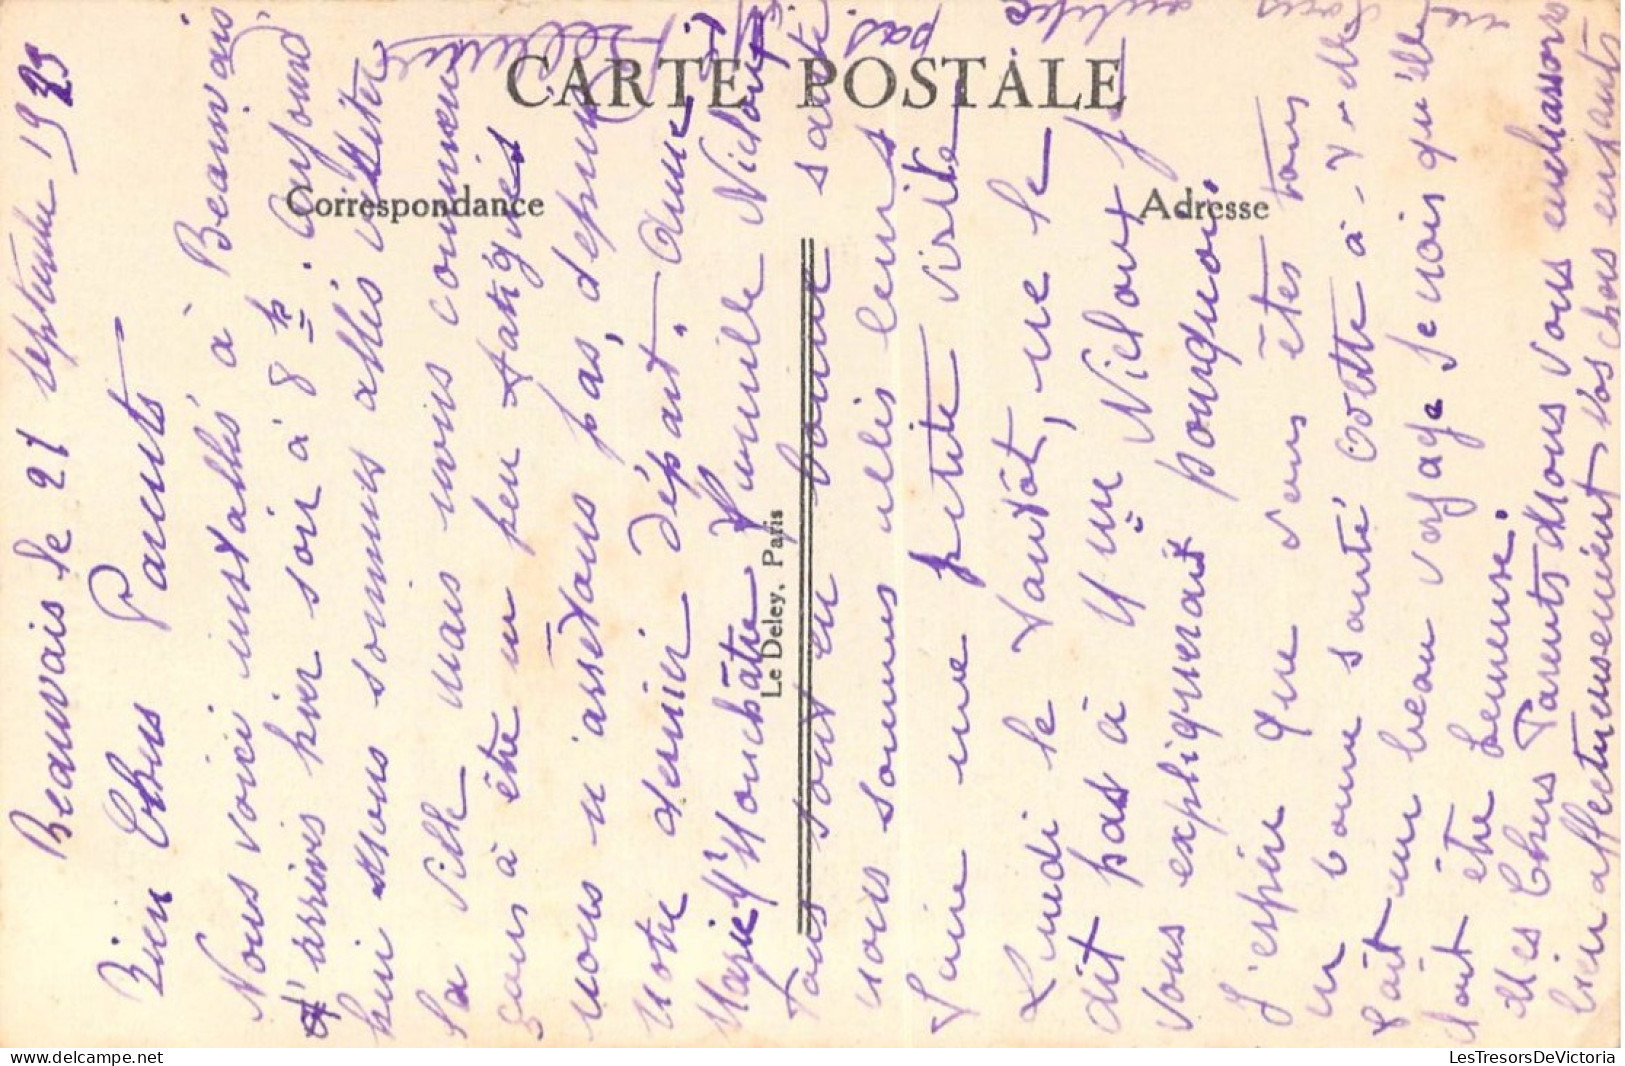 CARTE POSTALE
Correspondance
Adresse
Le Deley, Paris
Beauvais le 21 septembre 1923
Bien Chers Parents
Nous voici installés à Beauvais
d'arrivés hier soir à 8h. Aujourd'
hui nous sommes allés visiter
la ville mais nous commen
çons à être un peu fatigués
nous n'arrêtons pas, depuis
notre dernier départ.
Marie
famille Niclout
Tous sont en bonne santé
nous sommes allés leurs
faire une petite visite
Lundi le tantôt, ne le
dit pas à Mme Niclout je
vous expliquerait pourquoi.
J'espère que vous êtes tous
en bonne santé Colette a-t-elle
fait un beau voyage je crois qu'elle
doit être heureuse.
Mes Chers Parents nous vous embrassons
bien affectueusement vos chers enfants
pas.
LesTresorsDeVictoria